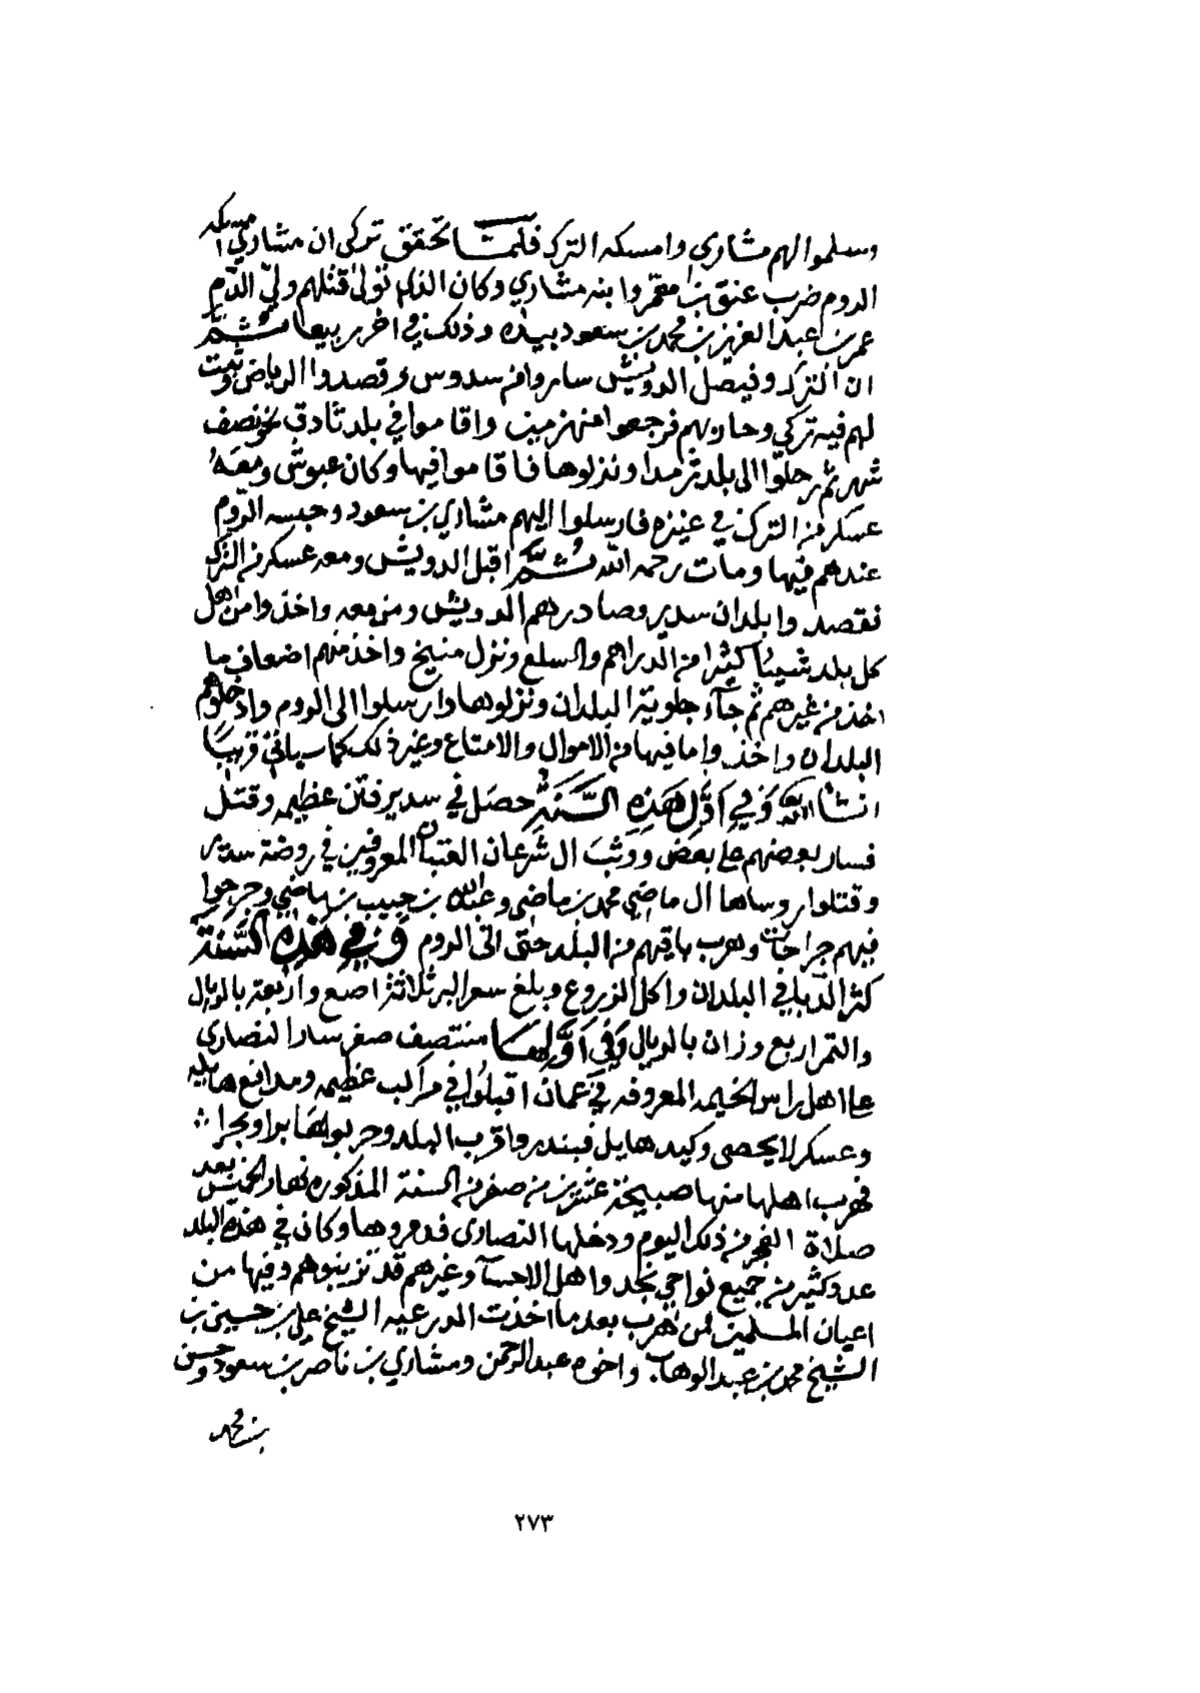 وسلموا لهم مشاري وامسكه الترك فلما تحقق تركي ان مشاري امسكه
الروم ضرب عنق بن معمر وابنه مشاري وكان الذي تولى قتلهم ولي الدم
عمر بن عبد العزيز بن محمد بن سعود بيده وذلك في اخر ربيع ثم
ان الترك وفيصل الدويش ساروا من سدوس وقصدوا الرياض وثبت
لهم فيه تركي وحاربهم فرجعوا منهزمين واقاموا في بلد ثادق نحو نصف
شهر ثم رحلوا الى بلد ثرمدا ونزلوها فاقاموا فيها وكان عبوش ومعه
عسكر من الترك في عنيزه فارسلوا اليهم مشاري بن سعود وحبسه الروم
عندهم فيها ومات رحمه الله ثم اقبل الدويش ومعه عسكر من الترك
فقصدوا بلدان سدير وصادرهم الدويش ومن معه واخذوا من اهل
كل بلد شيئا كثيرا من الدراهم والسلع ونزل منيخ واخذ منهم اضعاف ما
اخذ من غيرهم ثم جآء جلوية البلدان ونزلوها وارسلوا الى الروم وادخلوهم
البلدان واخذوا ما فيها من الاموال والامتاع وغير ذلك كما سياتي قريبا
انشا الله وفي اول هذه السنة حصل في سدير فتن عظيمه وقتل
فسار بعضهم على بعض ووثب ال شرعان المعروفين في روضة سدير
وقتلوا روساها ال ماضي محمد بن ماضي وعبدالله بن حبيب بن ماضي وجرحوا
فيهم جراحات وهرب باقيهم من البلد حتى اتى الروم وفي هذه السنة
كثر الدبا في البلدان واكل الزروع وبلغ سعر البر ثلاثة اصع واربعة بالريال
والتمر اربع وزان بالريال وفي اولها منتصف صفر سار النصارى
على اهل راس الخيمه المعروفه في عمان اقبلوا في مراكب عظيمه ومدافع هايله
وعسكر لا يحصى وكيد هايل فبندروا قرب البلد وحربوها برا وبحرا
فهرب اهلها منها صبيحة عشرين من صفر من السنة المذكوره نهار الخميس بعد
صلاة الفجر من ذلك اليوم ودخلها النصارى فدمروها وكان في هذه البلد
عدد كثير من جميع نواحي نجد واهل الاحسآ وغيرهم قد تزبنوهم وفيها من
اعيان المسلمين ممن هرب بعد ما اخذت الدرعيه الشيخ علي بن حسين بن
الشيخ محمد بن عبد الوهاب واخوه عبد الرحمن ومشاري بن ناصر بن سعود وحسن
بن محمد
٢٧٣